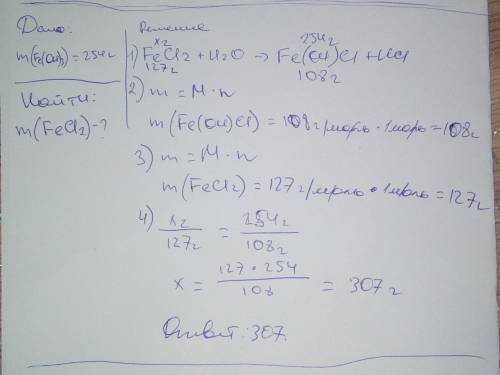 Дано:
m(Fe(OH)₂)=254г
Найти:
m(FeCl₂)-?
Решение
xг 254г
1) FeCl₂ + H₂O → Fe(OH)Cl + HCl
127г 108г
2) m = M · n
m(Fe(OH)Cl) = 108г/моль · 1моль = 108г
3) m = M · n
m(FeCl₂) = 127г/моль · 1моль = 127г
4) xг/127г = 254г/108г
x = 127·254/108 = 307г
Ответ: 307.